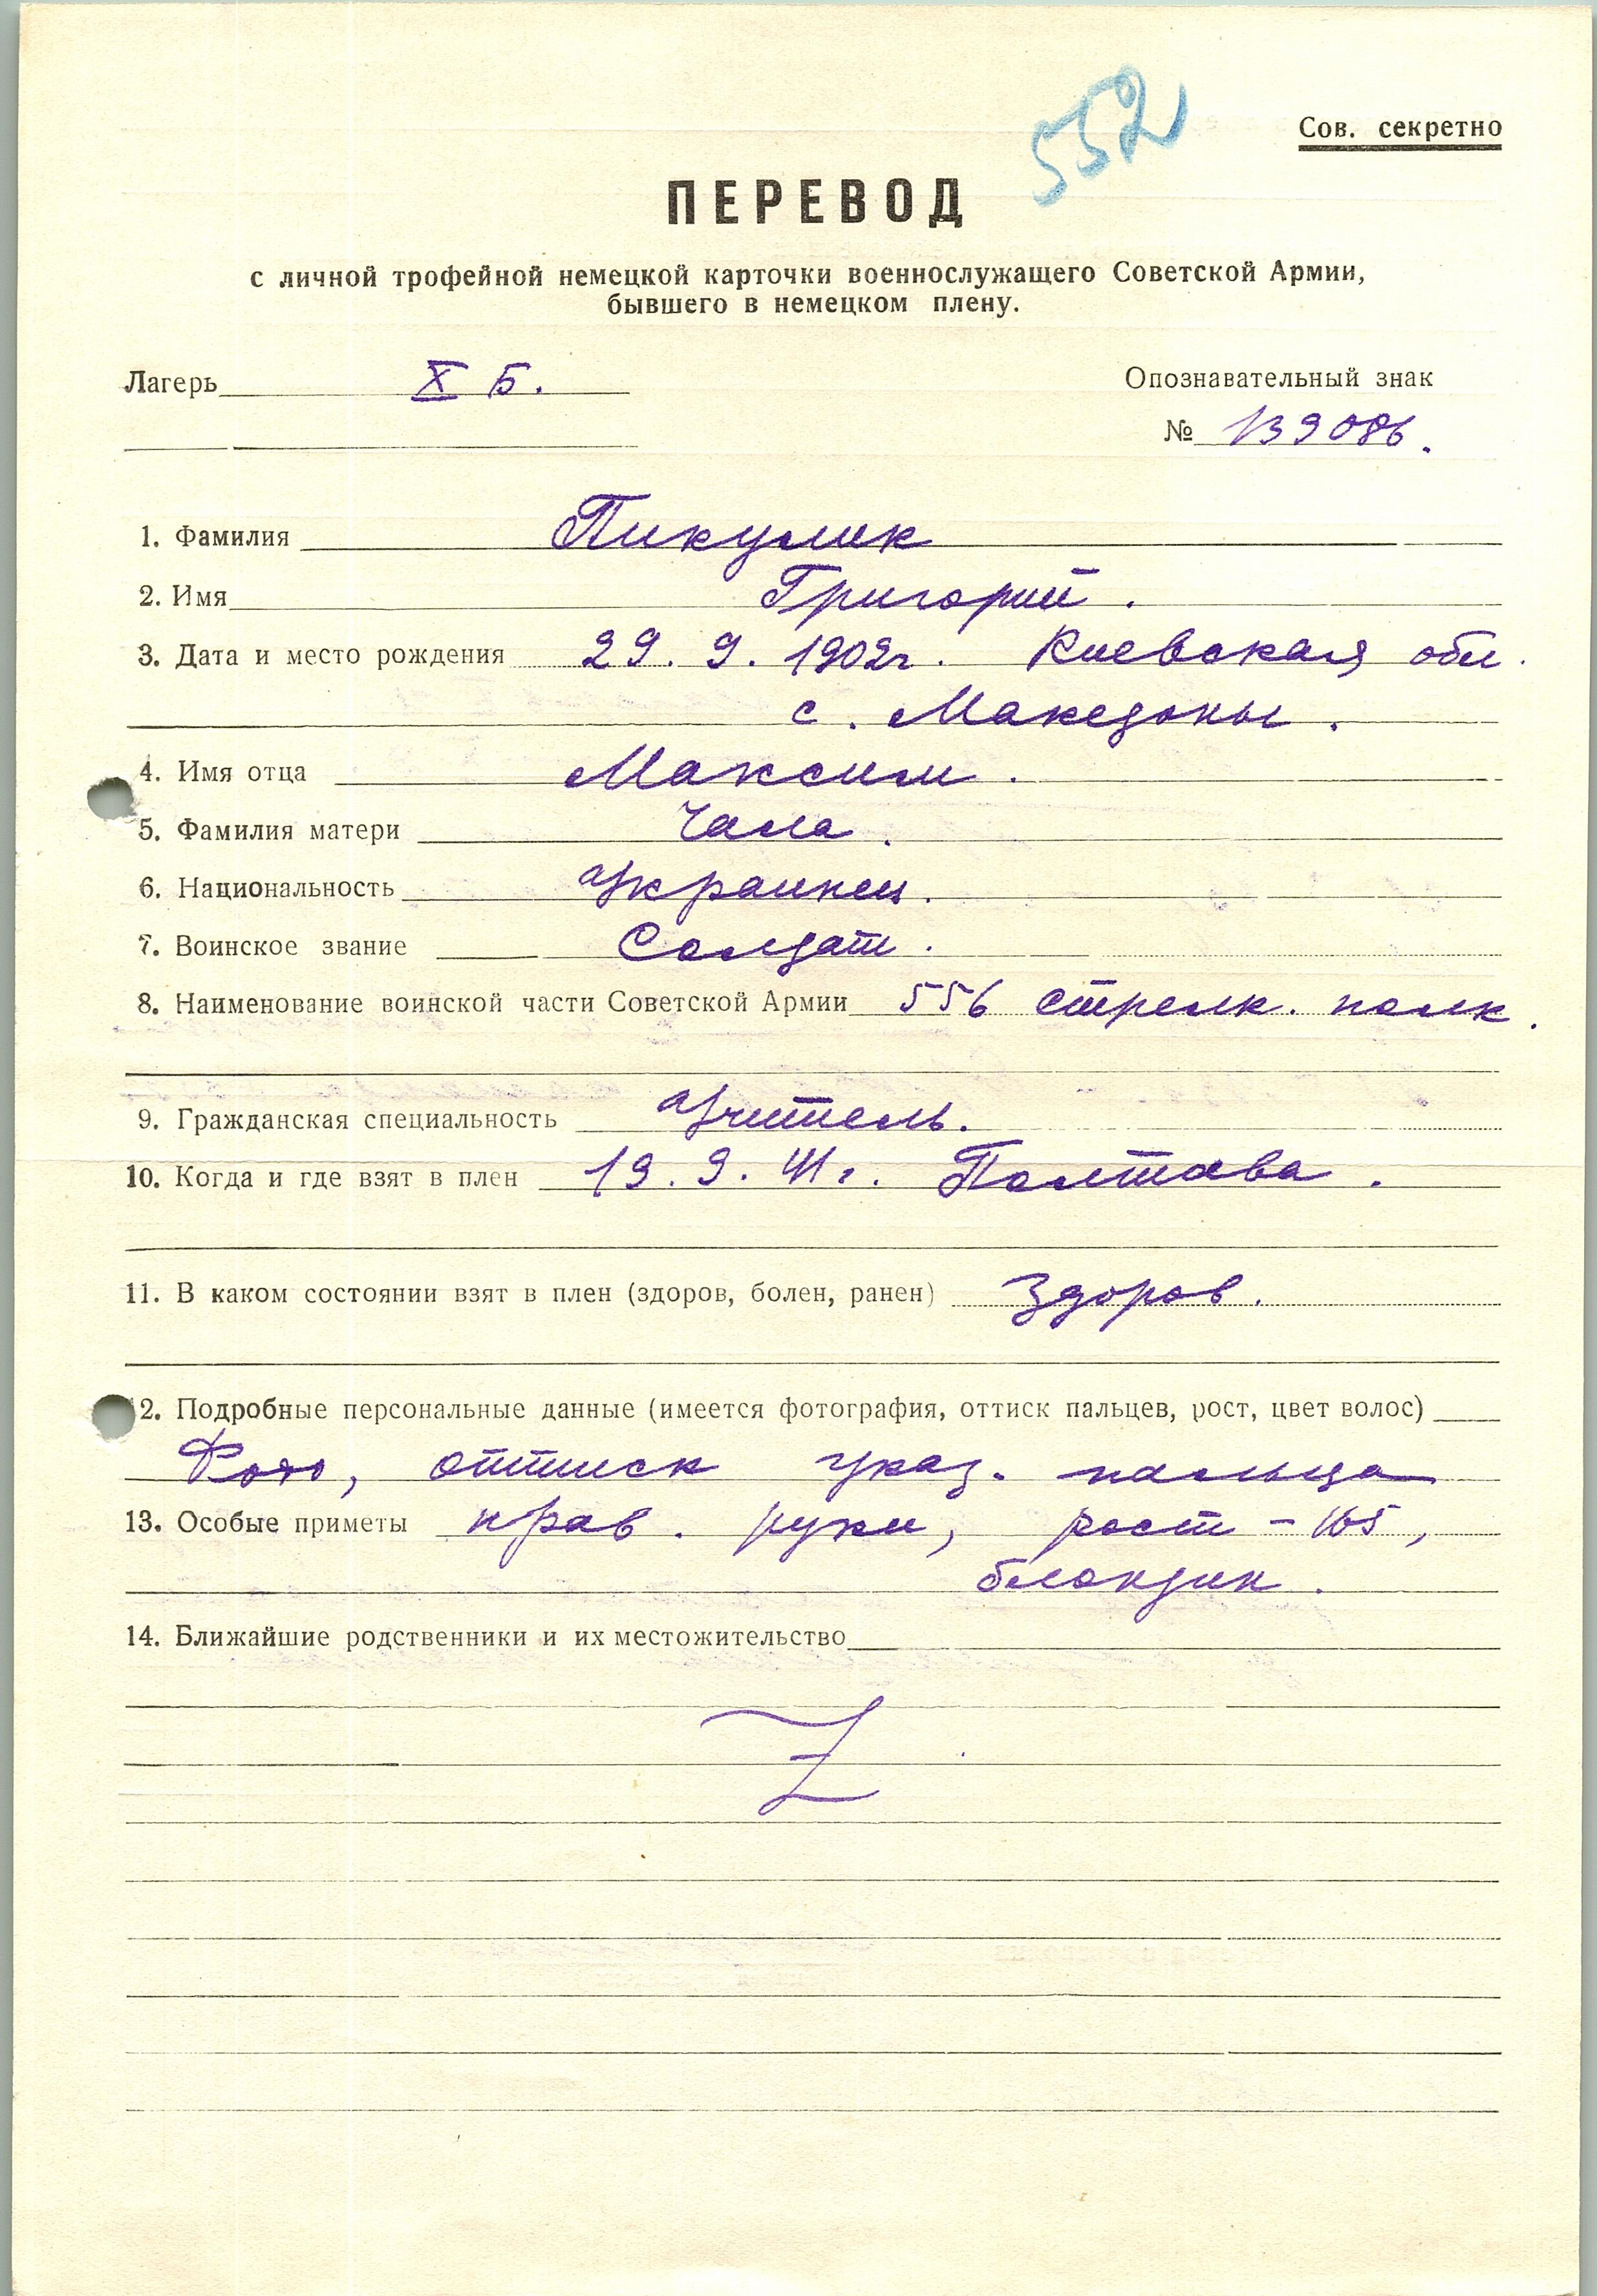 552
Сов. секретно
ПЕРЕВОД
с личной трофейной немецкой карточки военнослужащего Советской Армии,
бывшего в немецком плену.
Лагерь X Б.
Опознавательный знак
№ 139086.
1. Фамилия Пикулик
2. Имя Григорий.
3. Дата и место рождения 29. 9. 1902г. Киевская обл.
с. Македоны.
4. Имя отца Максим.
5. Фамилия матери Чала.
6. Национальность Украинец.
7. Воинское звание Солдат.
8. Наименование воинской части Советской Армии 556 стрелк. полк.
9. Гражданская специальность Учитель.
10. Когда и где взят в плен 19. 9. 41г. Полтава.
11. В каком состоянии взят в плен (здоров, болен, ранен) Здоров.
12. Подробные персональные данные (имеется фотография, оттиск пальцев, рост, цвет волос)
Фото, оттиск указ. пальца
13. Особые приметы прав. руки, рост - 165,
блондин.
14. Ближайшие родственники и их местожительство